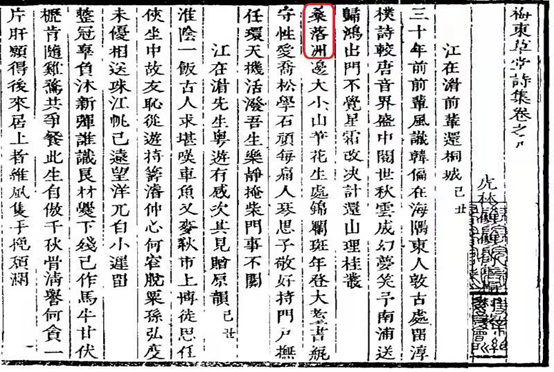 梅東草堂詩集卷之八
虎林
江在湄前輩還桐城 己丑
三十年前前輩風識韓偏在海隅東人敦古處留淳
樸詩較唐音界盛中閱世秋雲成幻夢笑予南浦送
歸鴻出門不覺星霜改決計還山理桂叢
桒落洲邊大小山華花生處錦斕斑年登大耋書
守性愛喬松學石頑每痛人琴思子敬好持門戶撫
任環天機活潑吾生樂靜掩柴門事不關
江在湄先生粵遊有感次其見贈原韻 己丑
淮陰一飯古人求堪嘆車魚又麥秋市上博徒思任
俠坐中故友恥從遊持籌潘仲心何窘脫粟孫弘度
未優相送珠江帆已遠望洋兀自小遲留
整冠辜負沐新彈誰識良材爨下殘已作馬牛甘伏
櫪肯隨雞鶩共爭餐此生自傲千秋骨清譽何貪一
片肝頗得後來居上者維風隻手挽頹瀾